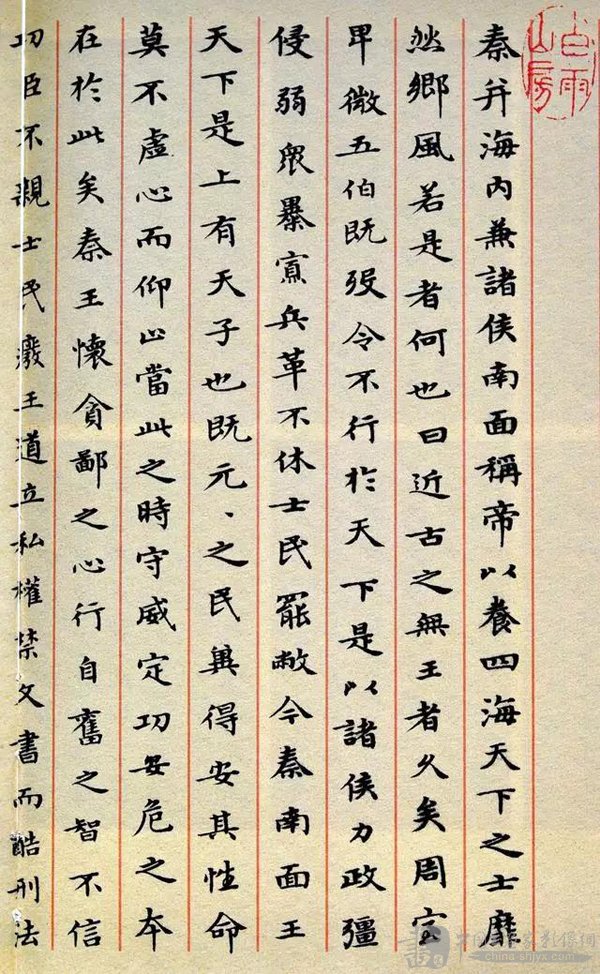 秦并海內兼諸侯南面稱帝以養四海天下之士靡
然鄉風若是者何也曰近古之無王者久矣周室
卑微五伯既歿令不行於天下是以諸侯力政彊
侵弱眾暴寡兵革不休士民罷敝今秦南面王
天下是上有天子也既元、之民冀得安其性命
莫不虛心而仰上當此之時守威定功安危之本
在於此矣秦王懷貪鄙之心行自奮之智不信
功臣不親士民廢王道立私權禁文書而酷刑法
雨山房
china-shjyx.com